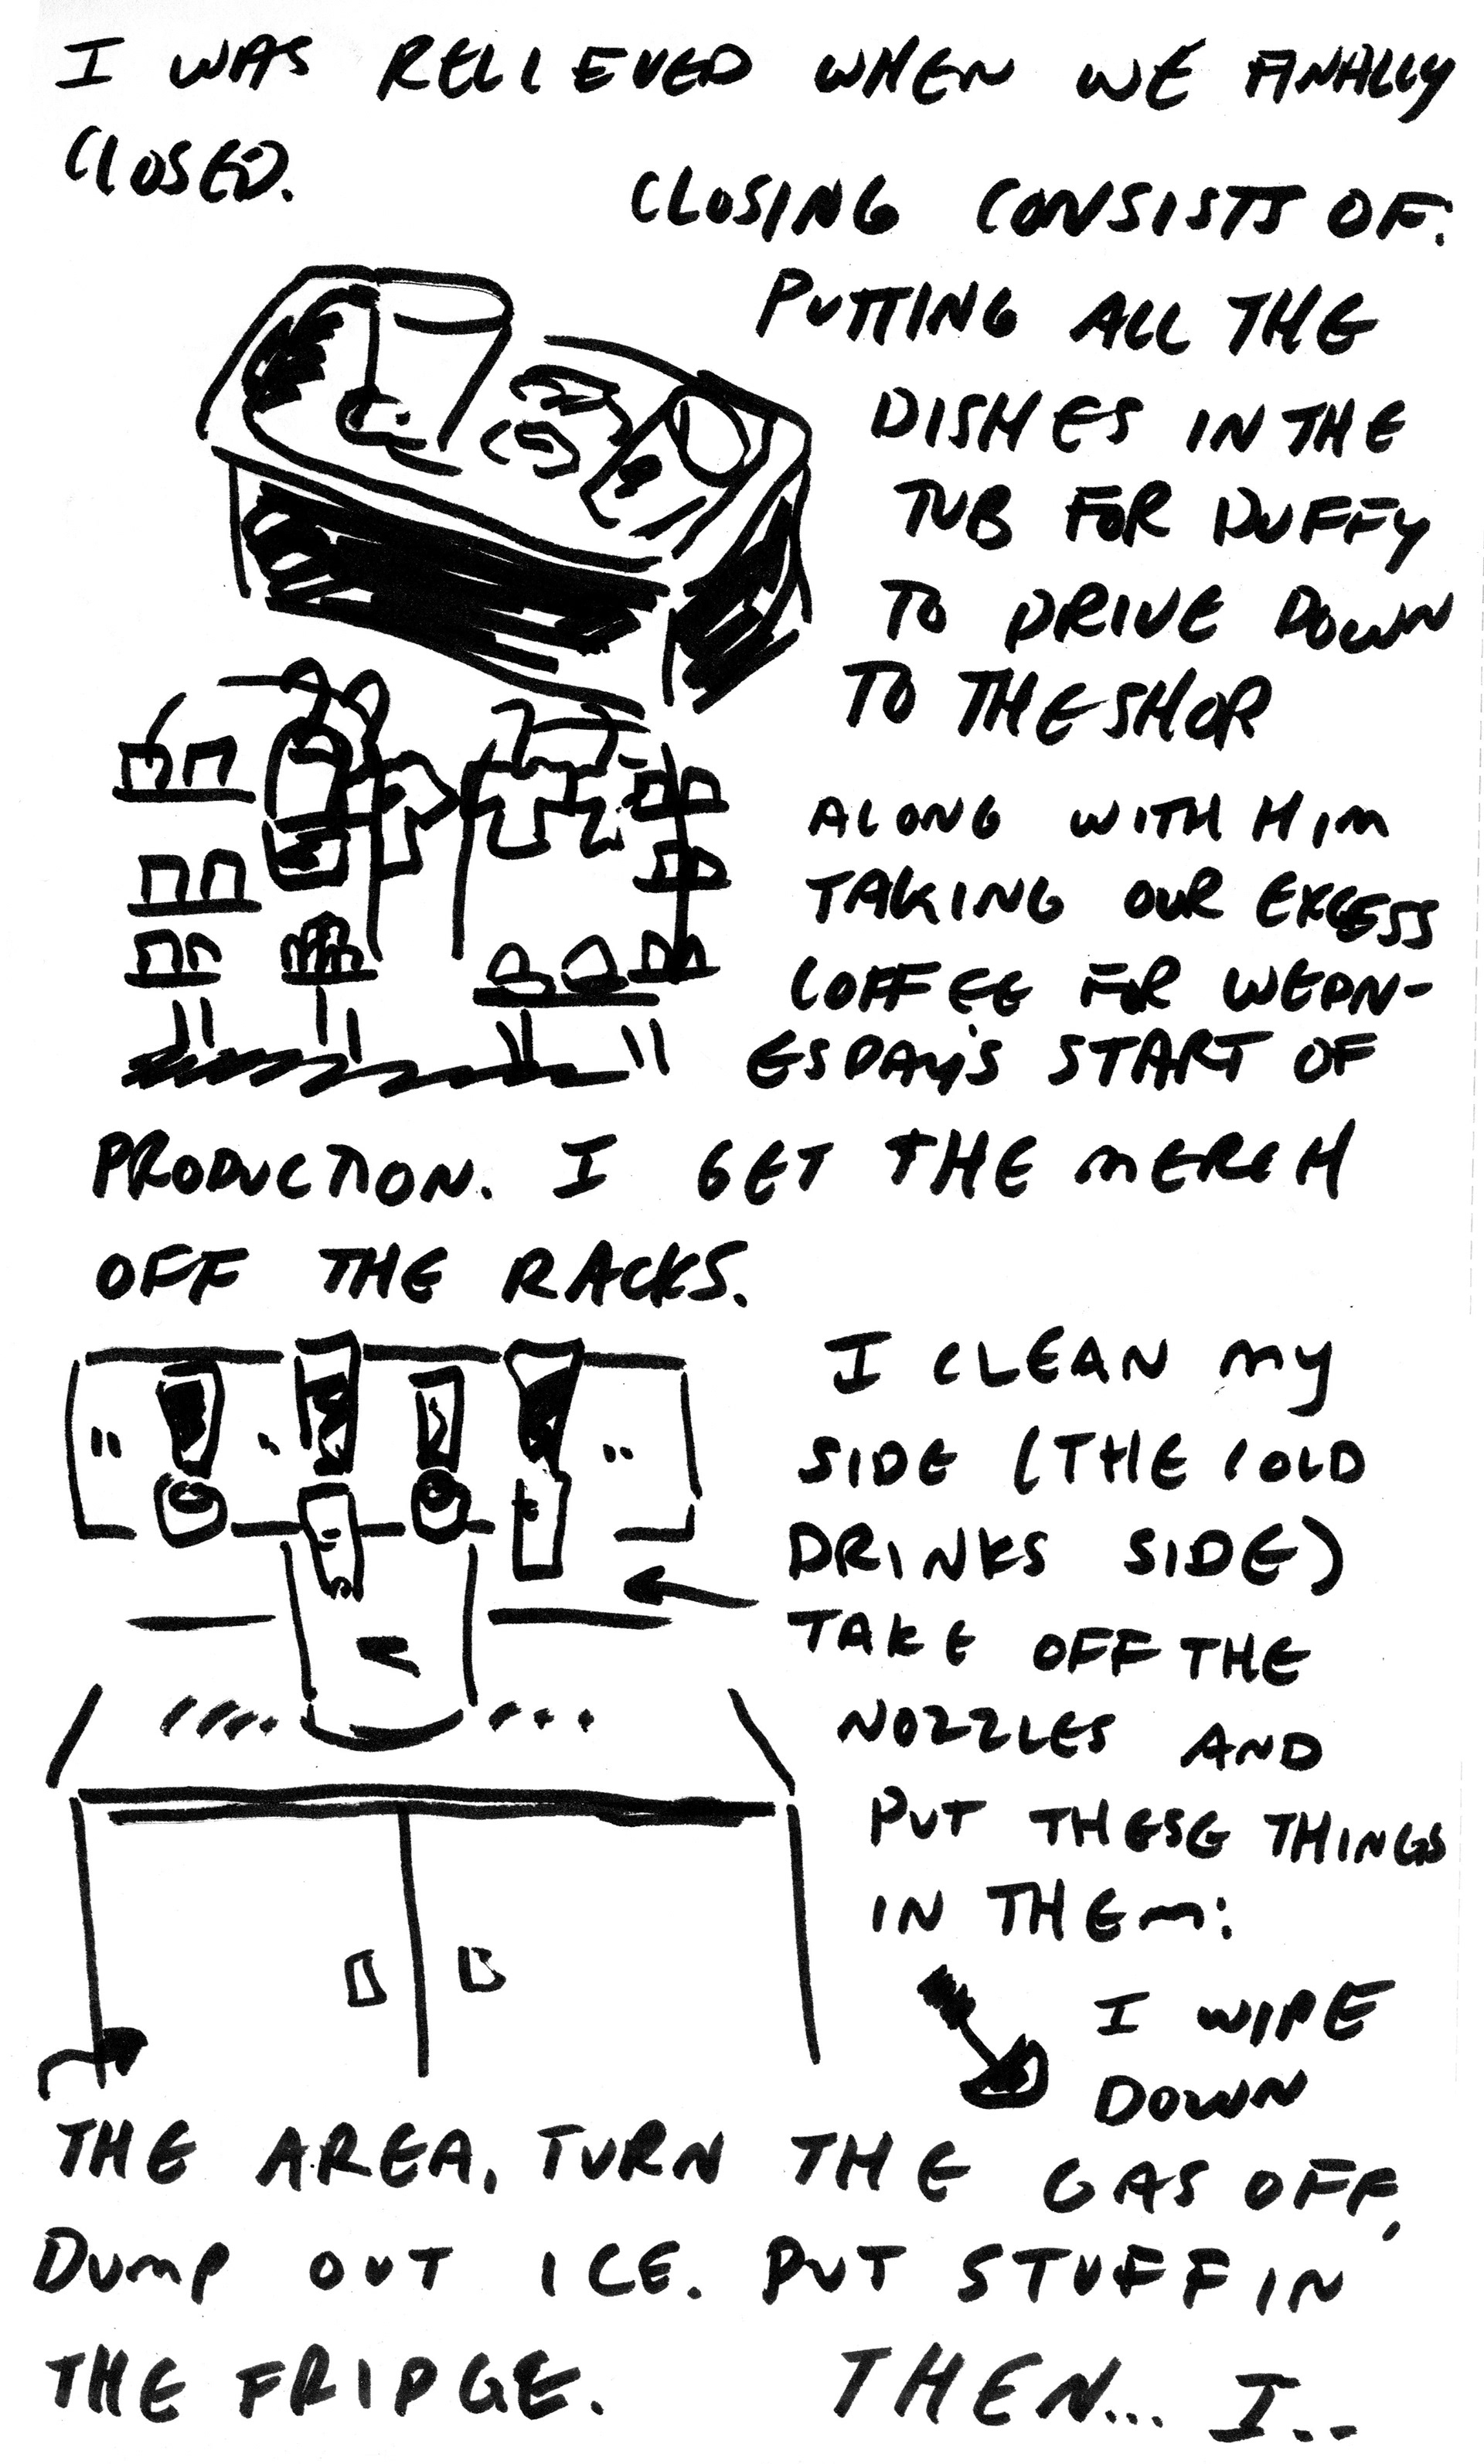 I WAS RELIEVED WHEN WE FINALLY
CLOSED.
CLOSING CONSISTS OF:
PUTTING ALL THE
DISHES IN THE
TUB FOR DUFFY
TO DRIVE DOWN
TO THE SHOP
ALONG WITH HIM
TAKING OUR EXCESS
COFFEE FOR WEDN-
ESDAY'S START OF
PRODUCTION. I GET THE MERCH
OFF THE RACKS.
I CLEAN MY
SIDE (THE COLD
DRINKS SIDE)
TAKE OFF THE
NOZZLES AND
PUT THESE THINGS
IN THEM:
I WIPE
DOWN
THE AREA, TURN THE GAS OFF,
DUMP OUT ICE. PUT STUFF IN
THE FRIDGE. THEN... I..